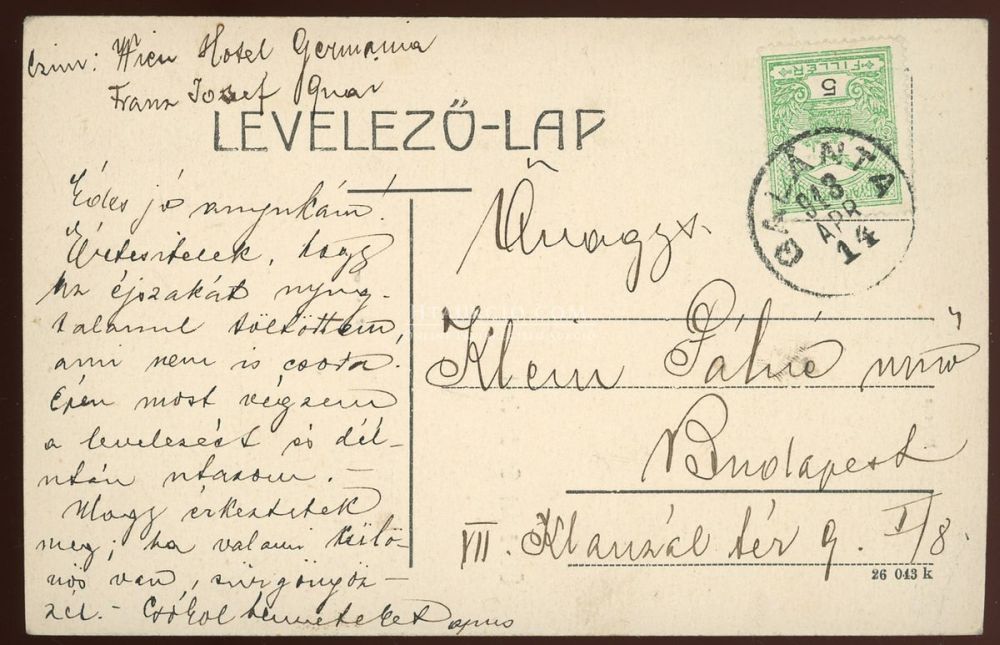 Czim: Wien Hotel Germania
Franz Josef Quai
LEVELEZŐ-LAP
FILLÉR
5
GALÁNTA
913
APR
14
Édes jó anyukám!
Értesitelek, hogy
az éjszakát nyug-
talanul töltöttem,
ami nem is csoda.
Épen most végzem
a levelezést és dél-
után utazom. —
Hogy érkeztetek
meg; ha valami külö-
nös van, sürgönyöz-
zél. — Csókol benneteket apus
Őnagys.
Klein Pálné urnő
Budapest
VII. Klauzál tér 9. I/8.
26 043 k